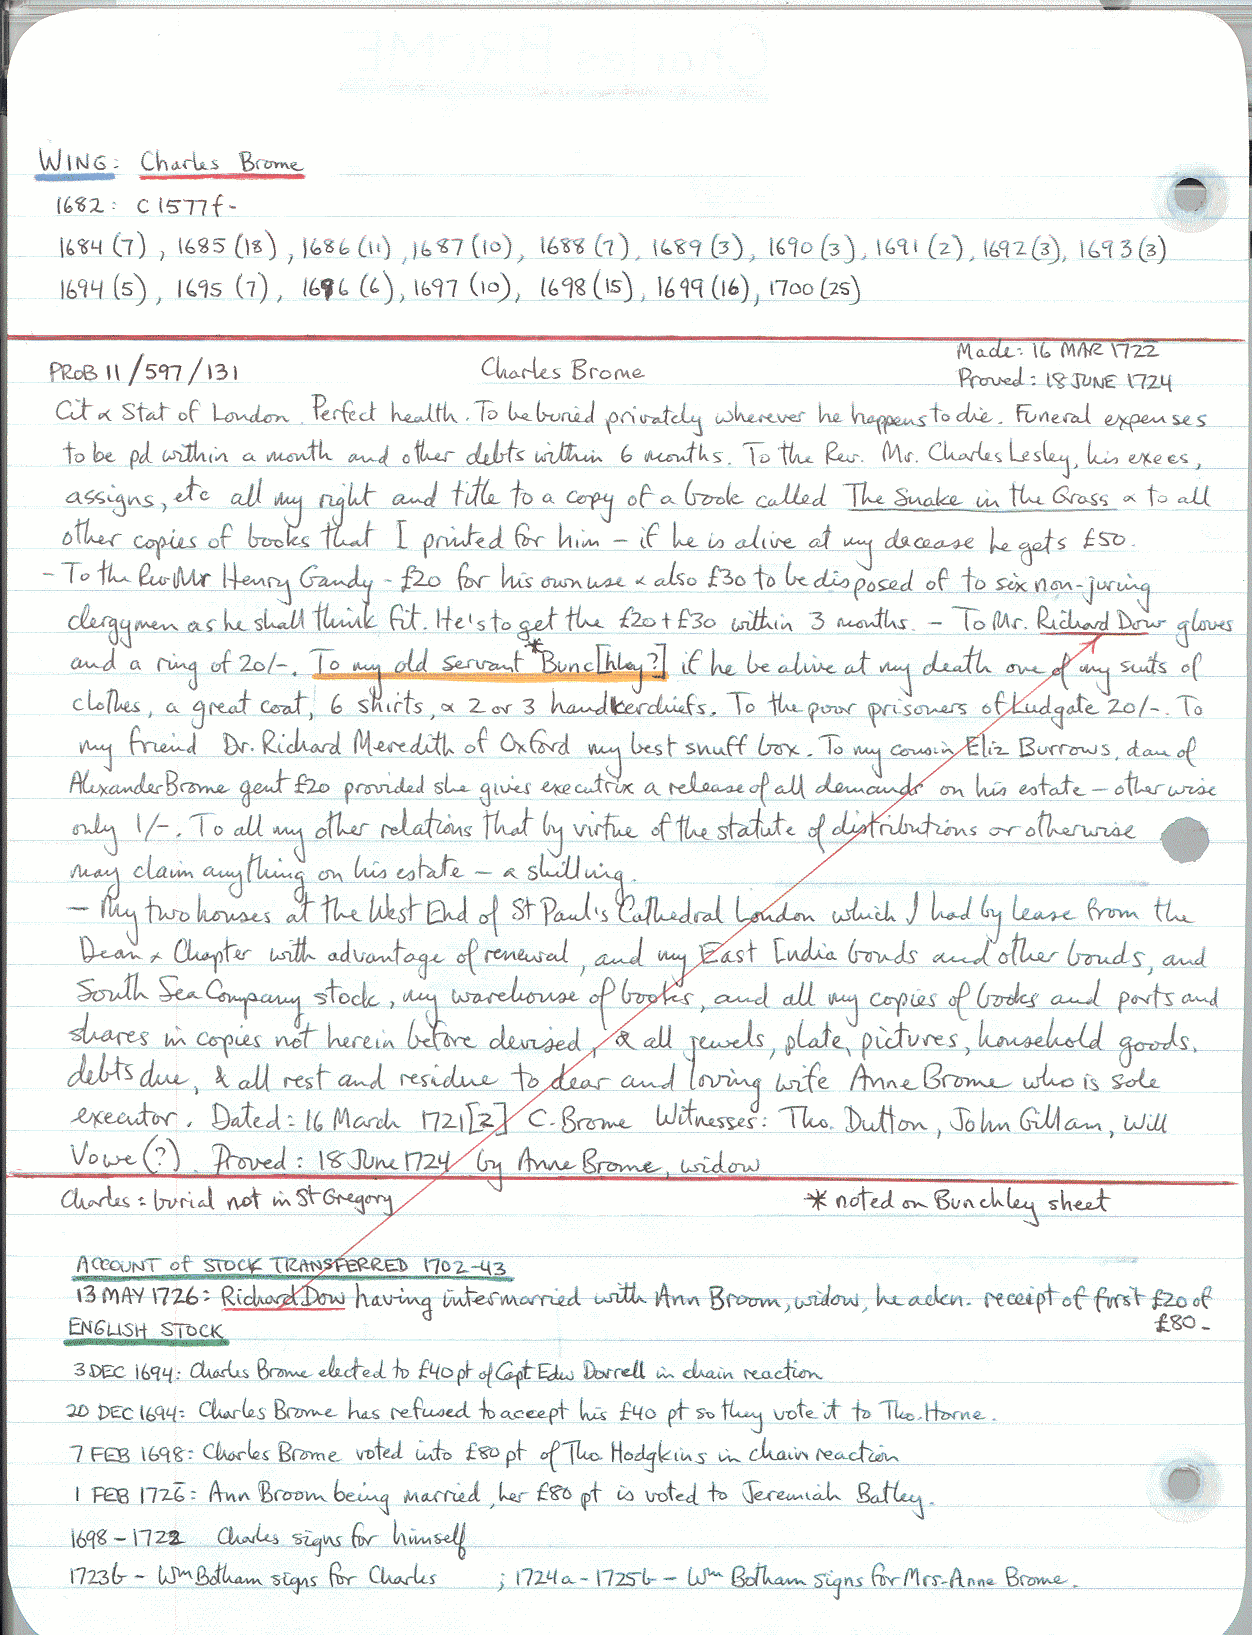 WING: Charles Brome
1682: C1577f-
1684 (7), 1685 (18), 1686 (11), 1687 (10), 1688 (7), 1689 (3), 1690 (3), 1691 (2), 1692 (3), 1693 (3)
1694 (5), 1695 (7), 1696 (6), 1697 (10), 1698 (15), 1699 (16), 1700 (25)
Made: 16 MAR 1722
PROB 11/597/131 Charles Brome
Proved: 18 JUNE 1724
Cit & Stat of London. Perfect health. To be buried privately wherever he happens to die. Funeral expenses
to be pd within a month and other debts within 6 months. To the Rev. Mr. Charles Lesley, his exees,
assigns, etc all my right and title to a copy of a book called The Snake in the Grass & to all
other copies of books that I printed for him - if he is alive at my decease he gets £50.
- To the Rev Mr Henry Gandy - £20 for his own use & also £30 to be disposed of to six non-juring
clergymen as he shall think fit. He's to get the £20 + £30 within 3 months. - To Mr. Richard Dow gloves
and a ring of 20/-. To my old servant *Bunc[hley?] if he be alive at my death one of my suits of
clothes, a great coat, 6 shirts, & 2 or 3 handkerchiefs. To the poor prisoners of Ludgate 20/-. To
my friend Dr. Richard Meredith of Oxford my best snuff box. To my cousin Eliz Burrows, dau of
Alexander Brome gent £20 provided she gives executrix a release of all demands on his estate - otherwise
only 1/-. To all my other relations that by virtue of the statute of distributions or otherwise
may claim anything on his estate - a shilling.
- My two houses at the West End of St Paul's Cathedral London which I had by lease from the
Dean & Chapter with advantage of renewal, and my East India bonds and other bonds, and
South Sea Company stock, my warehouse of books, and all my copies of books and parts and
shares in copies not herein before devised, & all jewels, plate, pictures, household goods,
debts due, & all rest and residue to dear and loving wife Anne Brome who is sole
executor. Dated: 16 March 1721[2] C. Brome Witnesses: Tho. Dutton, John Gillam, Will
Vowe (?). Proved: 18 June 1724 by Anne Brome, widow
Charles = burial not in St Gregory * noted on Bunchley sheet
ACCOUNT of STOCK TRANSFERRED 1702-43
13 MAY 1726: Richard Dow having intermarried with Ann Broom, widow, he ackn. receipt of first £20 of
£80-
ENGLISH STOCK
3 DEC 1694: Charles Brome elected to £40 pt of Capt Edw Darrell in chain reaction
20 DEC 1694: Charles Brome has refused to accept his £40 pt so they vote it to Tho. Horne.
7 FEB 1698: Charles Brome voted into £80 pt of Tho. Hodgkins in chain reaction
1 FEB 1726: Ann Broom being married, her £80 pt is voted to Jeremiah Batley.
1698 - 1722 Charles signs for himself
1723b - Wm Botham signs for Charles ; 1724a - 1725b - Wm Botham signs for Mrs. Anne Brome.